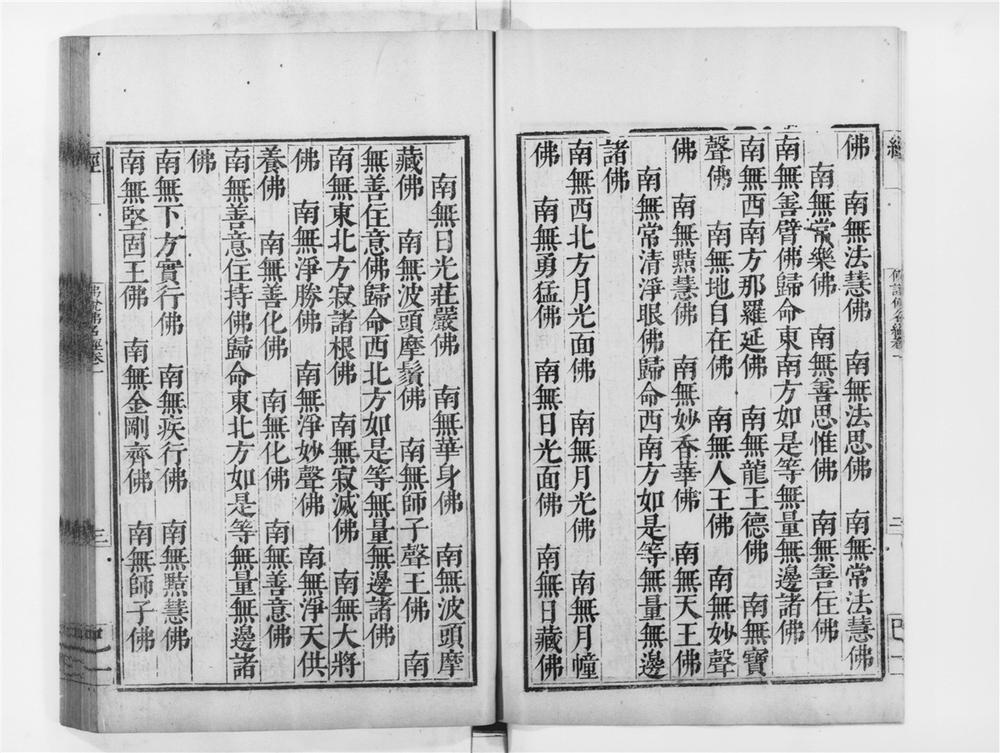 佛　南無法慧佛　南無法思佛　南無常法慧佛
南無常樂佛　南無善思惟佛　南無善住佛
南無善臂佛歸命東南方如是等無量無邊諸佛
南無西南方那羅延佛　南無龍王德佛　南無寶
聲佛　南無地自在佛　南無人王佛　南無妙聲
佛　南無㸃慧佛　南無妙香華佛　南無天王佛
南無常清淨眼佛歸命西南方如是等無量無邊
諸佛
南無西北方月光面佛　南無月光佛　南無月幢
佛　南無勇猛佛　南無日光面佛　南無日藏佛
南無日光莊嚴佛　南無華身佛　南無波頭摩
藏佛　南無波頭摩鬚佛　南無師子聲王佛　南
無善住意佛歸命西北方如是等無量無邊諸佛
南無東北方寂諸根佛　南無寂滅佛　南無大將
佛　南無淨勝佛　南無淨妙聲佛　南無淨天供
養佛　南無善化佛　南無化佛　南無善意佛
南無善意住持佛歸命東北方如是等無量無邊諸
佛
南無下方實行佛　南無疾行佛　南無㸃慧佛
南無堅固王佛　南無金剛齊佛　南無師子佛
經
三